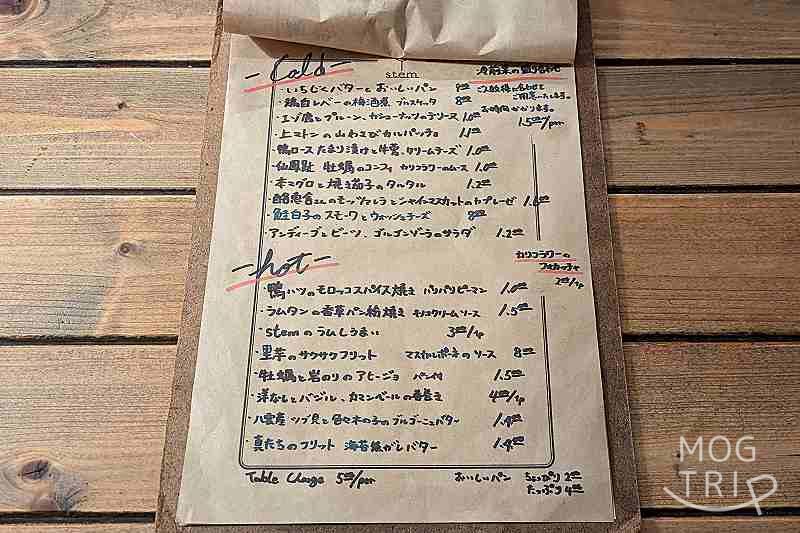 Cold
stem
冷前菜の盛り合わせ
ご人数様に合わせて
ご用意いたします。
お時間かかります。
1.5⁰⁰/per
・いちじくバターとおいしいパン 9⁰⁰
・鶏白レバーの梅酒煮 ブルスケッタ 8⁰⁰
・エゾ鹿とプルーン、カシューナッツのテリーヌ 1.0⁰⁰
・上マトンの山わさびカルパッチョ 1.1⁰⁰
・鴨ロースたまり漬けと牛蒡、クリームチーズ 1.0⁰⁰
・仙鳳趾 牡蠣のコンフィ カリフラワーのムース 1.0⁰⁰
・本マグロと焼き茄子のタルタル 1.2⁰⁰
・酪恵舎さんのモッツァレラとシャインマスカットのカプレーゼ 1.6⁰⁰
・鮭白子のスモークとウォッシュチーズ 8⁰⁰
・アンディーブとビーツ、ゴルゴンゾーラのサラダ 1.2⁰⁰
hot
カリフラワーの
フォカッチャ
2⁰⁰/1p
・鴨ハツのモロッコスパイス焼き パリパリピーマン 1.0⁰⁰
・ラムタンの香草パン粉焼き キノコクリームソース 1.5⁰⁰
・stemのラムしうまい 3⁰⁰/1p
・里芋のサクサクフリット マスカルポーネのソース 8⁰⁰
・牡蠣と岩のりのアヒージョ パン付 1.5⁰⁰
・洋なしとバジル、カマンベールの春巻き 4⁰⁰/1p
・八雲産ツブ貝と色々木の子のブルゴーニュバター 1.4⁰⁰
・真たちのフリット 海苔焦がしバター 1.4⁰⁰
Table Charge 5⁰⁰/per
おいしいパン ちょっぴり 2⁰⁰
たっぷり 4⁰⁰
MOG
TRIP